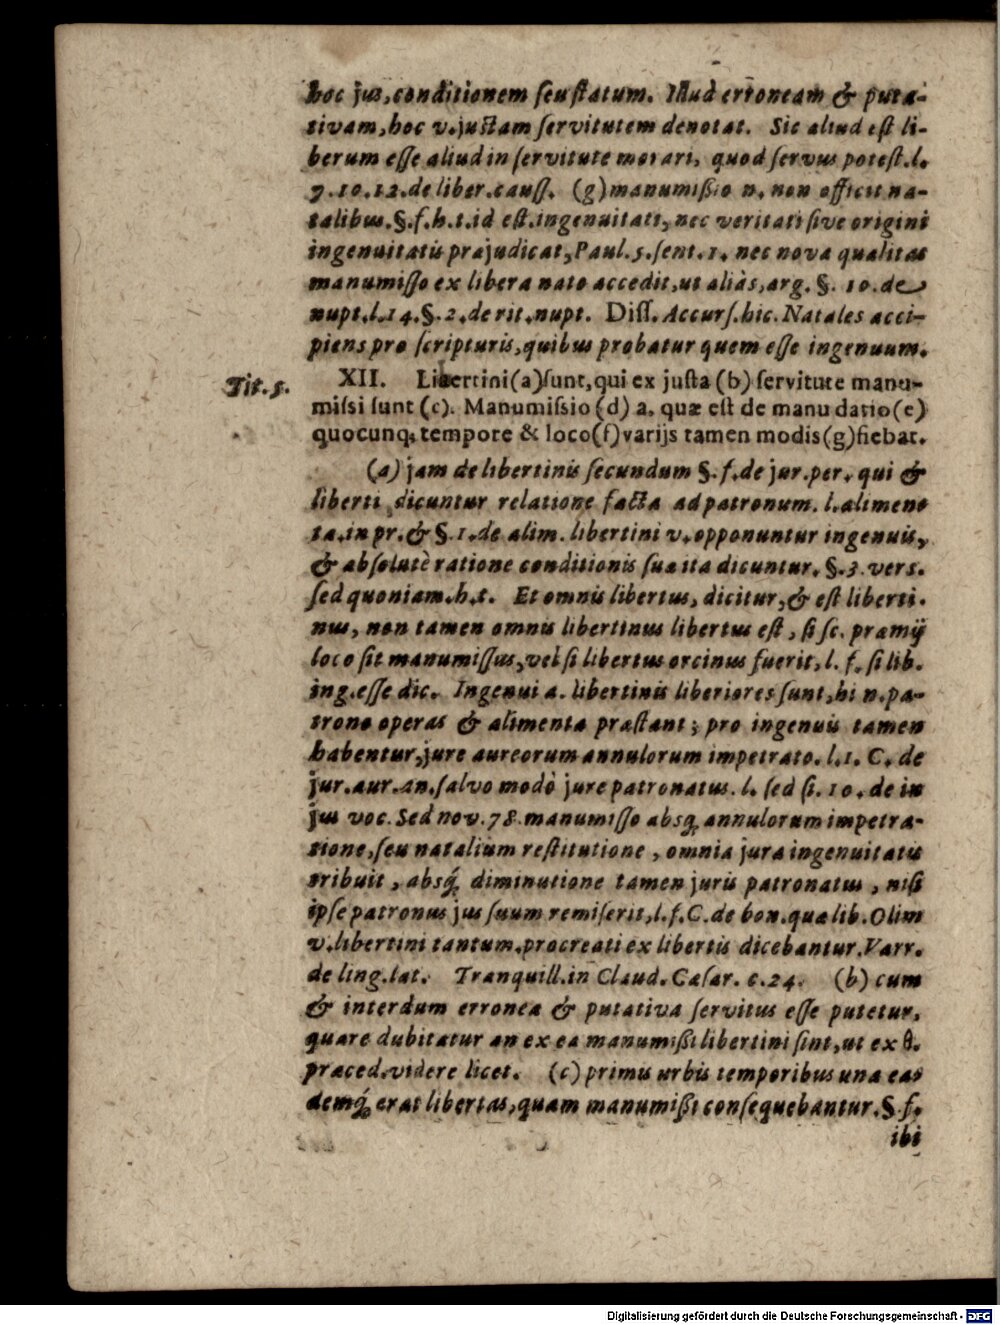 hoc jus, conditionem seu statum. Illud erroneam & puta-
tivam, hoc v. justam servitutem denotat. Sic aliud est li-
berum esse aliud in servitute morari, quod servus potest. l.
7. 10. 12. de liber. causs. (g) manumißio n. non officit na-
talibus. §. f. h. t. id est. ingenuitati, nec veritati sive origini
ingenuitatis præjudicat, Paul. 5. sent. 1. nec nova qualitas
manumisso ex libera nato accedit, ut aliàs, arg. §. 10. de
nupt. l. 14. §. 2. de rit. nupt. Diss. Accurs. hic. Natales acci-
piens pro scripturis, quibus probatur quem esse ingenuum.
Tit. 5.
XII. Libertini (a) sunt, qui ex justa (b) servitute manu-
missi sunt (c). Manumissio (d) a. quæ est de manu datio (e)
quocunq; tempore & loco (f) varijs tamen modis (g) fiebat.
(a) jam de libertinis secundum §. f. de jur. per. qui &
liberti dicuntur relatione facta ad patronum. l. alimeno
ta. in pr. & §. 1. de alim. libertini v. opponuntur ingenuis,
& absolutè ratione conditionis sua ita dicuntur. §. 3. vers.
sed quoniam. h. t. Et omnis libertus, dicitur, & est liberti-
nus, non tamen omnis libertinus libertus est, si sc. præmij
loco sit manumissus, vel si libertus orcinus fuerit, l. f. si lib.
ing. esse dic. Ingenui a. libertinis liberiores sunt, hi n. pa-
trono operas & alimenta præstant; pro ingenuis tamen
habentur, jure aureorum annulorum impetrato. l. 1. C. de
jur. aur. an. salvo modò jure patronatus. l. sed si. 10. de in
jus voc. Sed nov. 78. manumisso absq; annulorum impetra-
tione, seu natalium restitutione, omnia jura ingenuitatis
tribuit, absq; diminutione tamen juris patronatus, nisi
ipse patronus jus suum remiserit, l. f. C. de bon. quæ lib. Olim
v. libertini tantum. procreati ex libertis dicebantur. Varr.
de ling. lat. Tranquill. in Claud. Cæsar. c. 24. (b) cum
& interdum erronea & putativa servitus esse putetur,
quare dubitatur an ex ea manumißi libertini sint, ut ex θ.
præced. videre licet. (c) primis urbis temporibus una eas
demq; erat libertas, quam manumißi consequebantur. §. f.
ibi
Digitalisierung gefördert durch die Deutsche Forschungsgemeinschaft - DFG